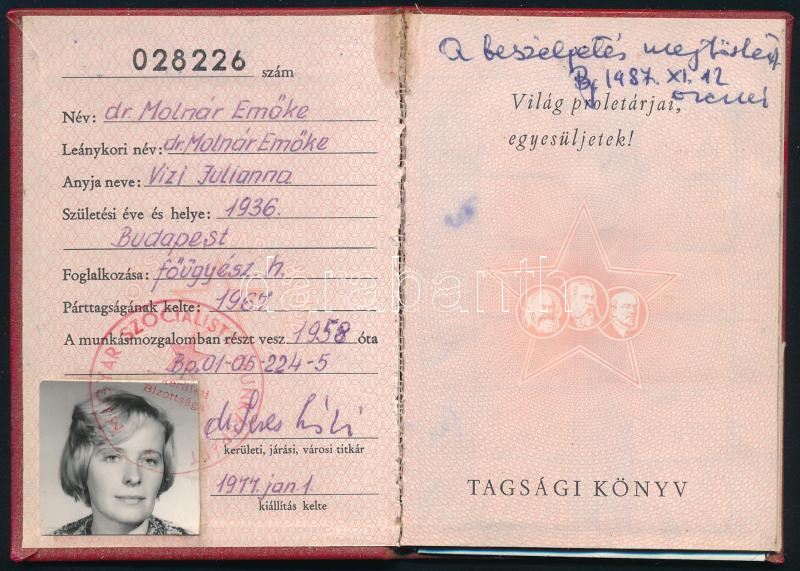 028226 szám
Név: dr. Molnár Emőke
Leánykori név: dr. Molnár Emőke
Anyja neve: Vizi Julianna
Születési éve és helye: 1936.
Budapest
Foglalkozása: főügyész h.
Párttagságának kelte: 1967
A munkásmozgalomban részt vesz 1958 óta
Bp, 01-05-224-5
MAGYAR SZOCIALISTA MUNKÁSPÁRT
kerületi
Bizottsága
kerületi, járási, városi titkár
1977. jan 1.
kiállítás kelte
A beszélgetés megtörtént
Bp, 1987. XI. 12
Világ proletárjai,
egyesüljetek!
TAGSÁGI KÖNYV
darabanth